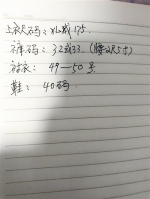 上衣尺码：XL或175.
裤码：32或33.（腰2尺5寸）
衬衣：49—50号
鞋：40码